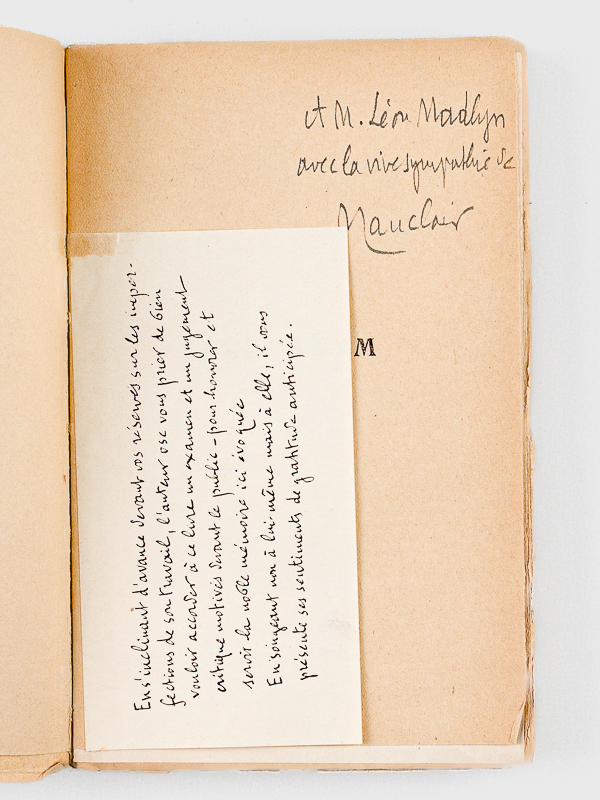 A M. Léon Madlyn
avec la vive sympathie de
Mauclair
M
En s'inclinant d'avance devant vos réserves sur les imper-
fections de son travail, l'auteur ose vous prier de bien
vouloir accorder à ce livre un examen et un jugement
critique motivés devant le public – pour honorer et
servir la noble mémoire ici évoquée
En songeant non à lui-même mais à elle, il vous
présente ses sentiments de gratitude anticipée.